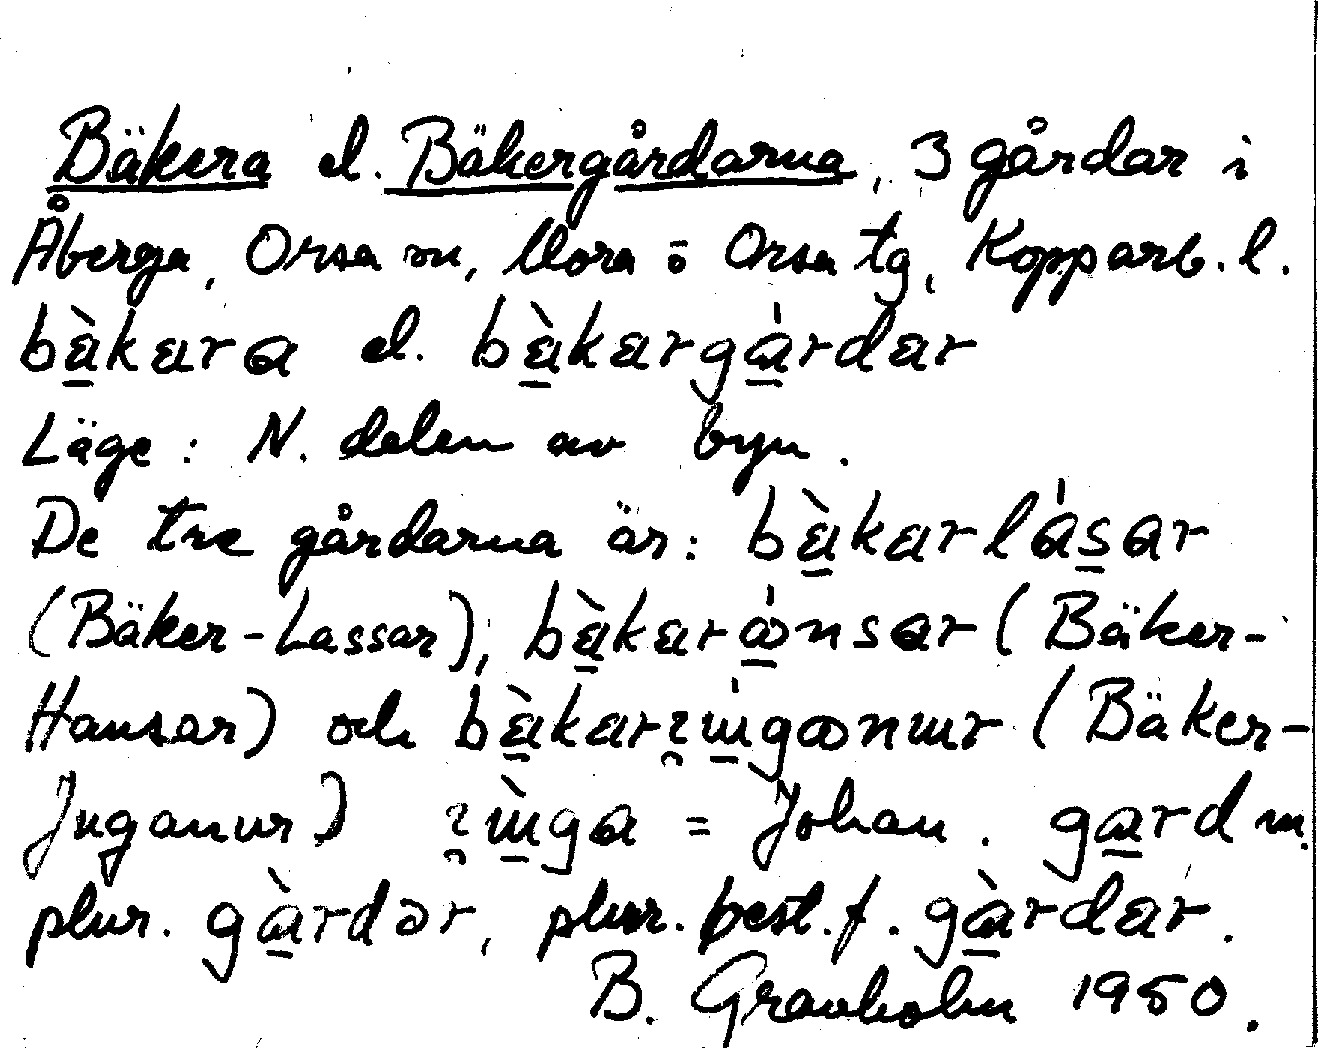 Bäkera el. Bäkergårdarna, 3 gårdar i
Åberga, Orsa sn, Mora o Orsa tg, Kopparb. l.
bàkara el. bàkargárdar
Läge: N. delen av byn.
De tre gårdarna är: bàkarlásar
(Bäker-Lassar), bàkaránsar (Bäker-
Hansar) och (Bäker-
Juganur) = Johan. gard m.
plur. gàrdər, plur. best. f. gàrdar.
B. Granholm 1950.